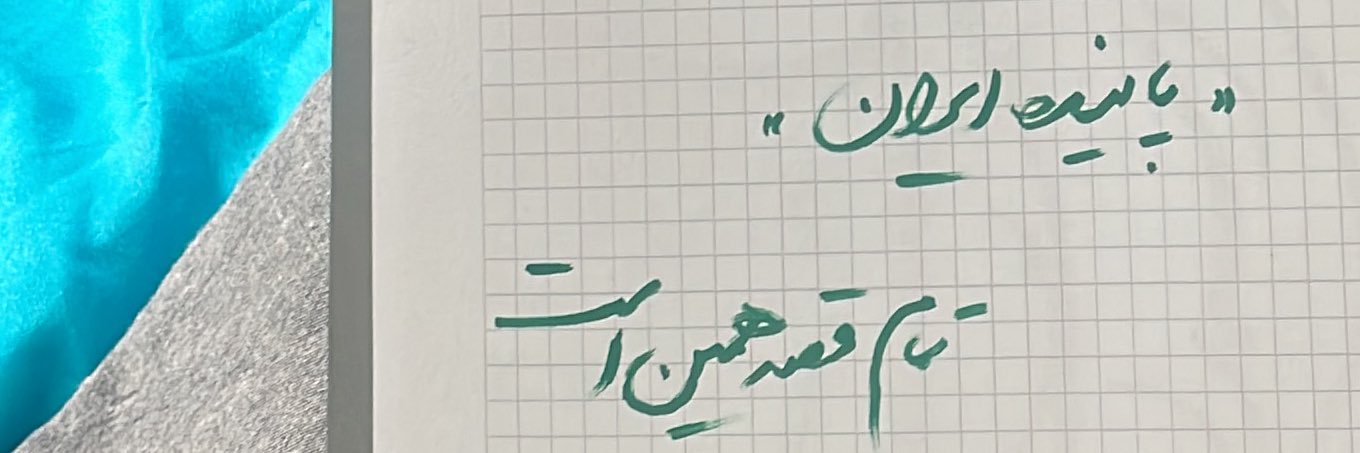 «پاینده ایران»
تمام قصه همین است